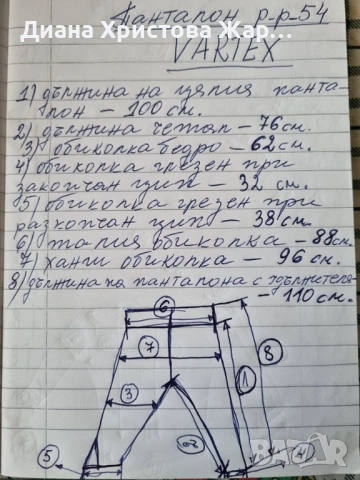 Диана Христова Жар...
Панталон р-р-54
VARTEX
1) дължина на целия панта-
лон - 100 см.
2) дължина чатал - 76 см.
3) обиколка бедро - 62 см.
4) обиколка глезен при
закопчан цип - 32 см.
5) обиколка глезен при
разкопчан цип - 38 см.
6) талия обиколка - 88 см.
7) ханш обиколка - 96 см.
8) дължина на панталона с одържателя
- 110 см.
6
7
8
3
1
2
5
4
bazar